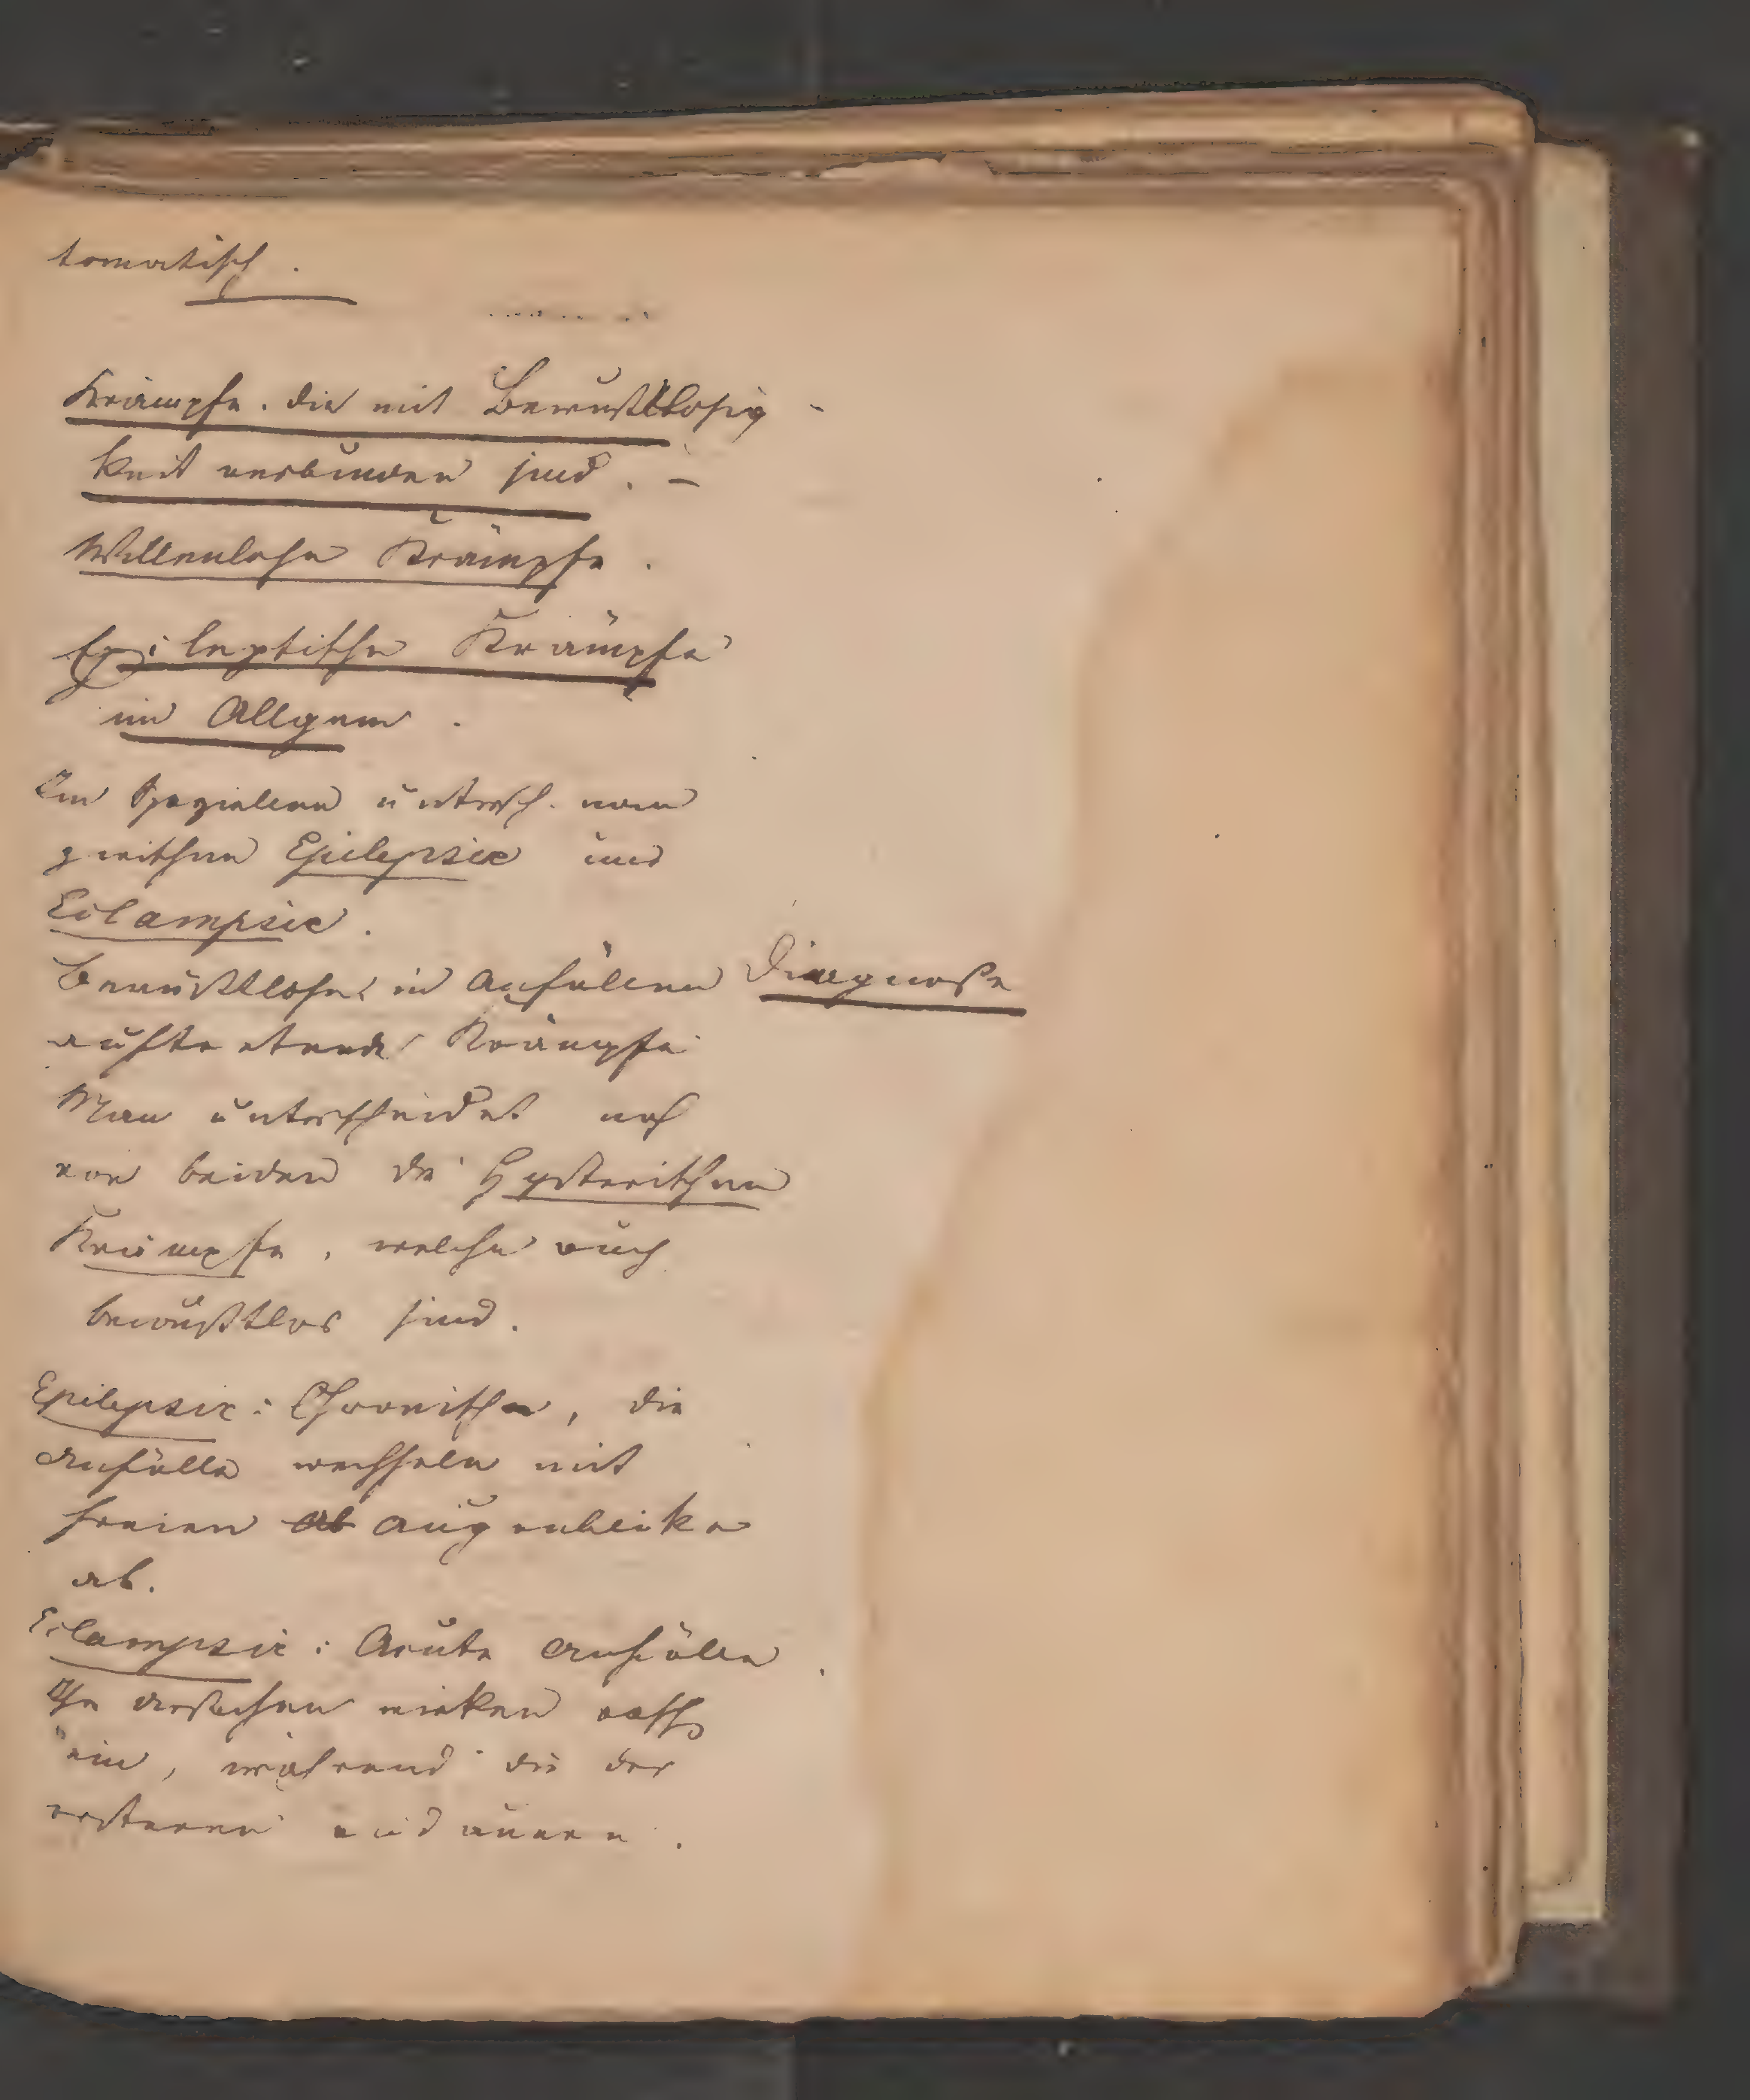 tomatisch.
Krämpfe. die mit Bewußtlosig-
keit verbunden sind. –
Willenlose Krämpfe.
Epileptische Krämpfe
im Allgem.
Im Spezielen untersch. man
zwischen Epilepsie und
Eclampsie.
Bewußtlose in Anfällen Diagnose
auftretende Krämpfe
Man unterscheidet noch
von beiden die Hysterischen
Krämpfe, welche auch
bewußtlos sind.
Epilepsie: Chronische, die
Anfälle wechseln mit
freien Ab Augenblicke
ab.
Eclampsie: Acute Anfälle.
wirken rasch
ein, während die der
ersteren